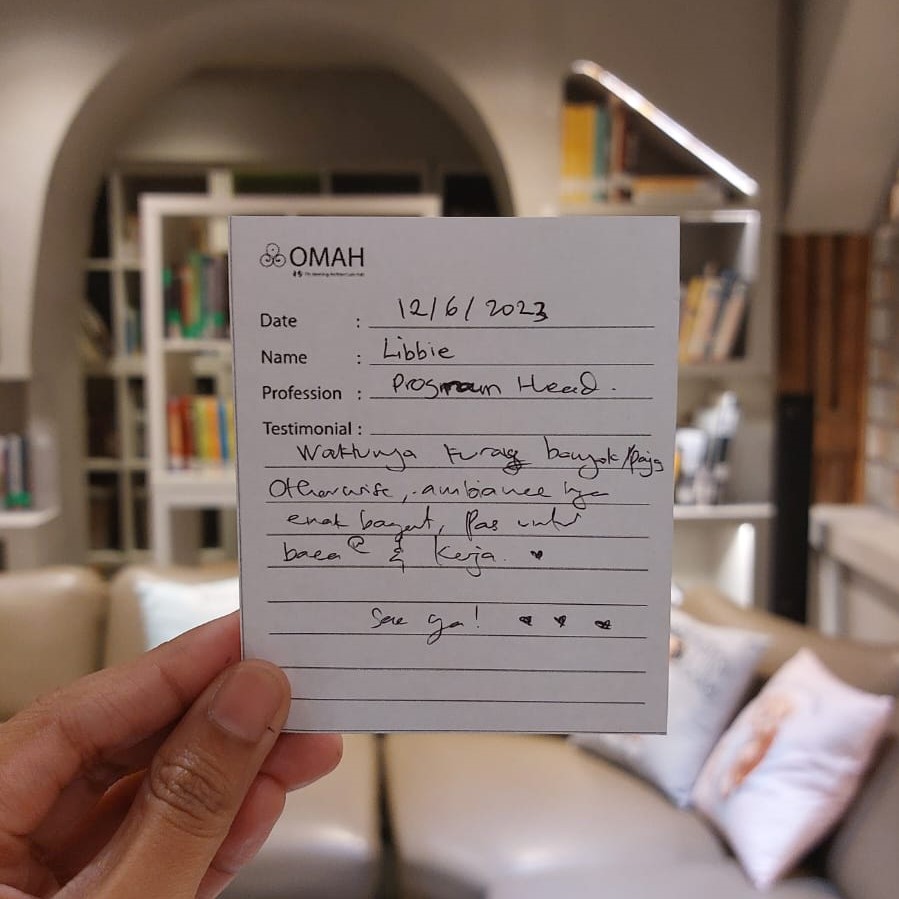 OMAH
Date : 12/6/2023
Name : Libbie
Profession : Program Head.
Testimonial :
Waktunya kurang banyak/
Otherwise, ambiance nya
enak banget, pas untuk
baca² & kerja. ♥
See ya! ♥ ♥ ♥